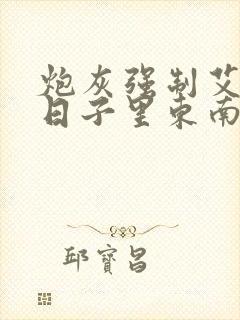 炮灰强制艾
日子里东南
邱寶昌